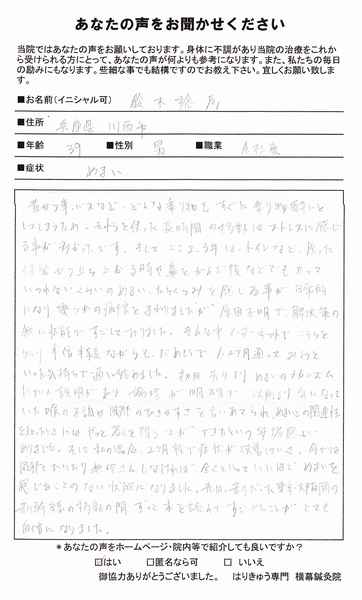 あなたの声をお聞かせください
当院ではあなたの声をお願いしております。身体に不調があり当院の治療をこれか
ら受けられる方にとって、あなたの声が何よりも参考になります。また、私たちの毎日
の励みにもなります。些細な事でも結構ですのでお教え下さい。宜しくお願い致しま
す。
■お名前(イニシャル可) 鈴木
■住所 兵庫県 川西市
■年齢 39 ■性別 男 ■職業 会社員
■症状 めまい
昔から車、バスなど、どんな乗り物もすぐに乗り物酔いを
してしまうため、それらを使った長時間の移動はストレスに感じ
る事が多かったです。そして、ここ2、3年は、トイレなど、座った
状態から立ち上がる時や鼻をかんだ後などでも立って
いられないくらいのめまい、たちくらみを感じる事が日常的
になり幾つかの病院をまわりましたが、原因不明で、解決策の
無い状態ですごしておりました。そんな中インターネットでこちらを
半信半疑ながらも、だめもとで1、2ヶ月通ってみようと
いった気持ちで通い始めました。初日 先生より めまいのメカニズム
について説明があり 論理が明確で 以前より気になって
いた喉の不調や のひきやすさを言いあてられ、めまいとの関連性
を やっと答えを得ることができたという
ありました。 私の場合、2ヶ月程で症状が改善していき、今では
無理さえしなければ 全くといっていいほど めまいを
感じることのない状態になりました。先日、苦手だった東京-大阪間の
新幹線の移動の間 ずっと本を読んですごせたことが とても
自信になりました。
*あなたの声をホームページ・院内等で紹介しても良いですか?
☑はい □匿名なら可 □いいえ
御協力ありがとうございました。 はりきゅう専門 横幕鍼灸院